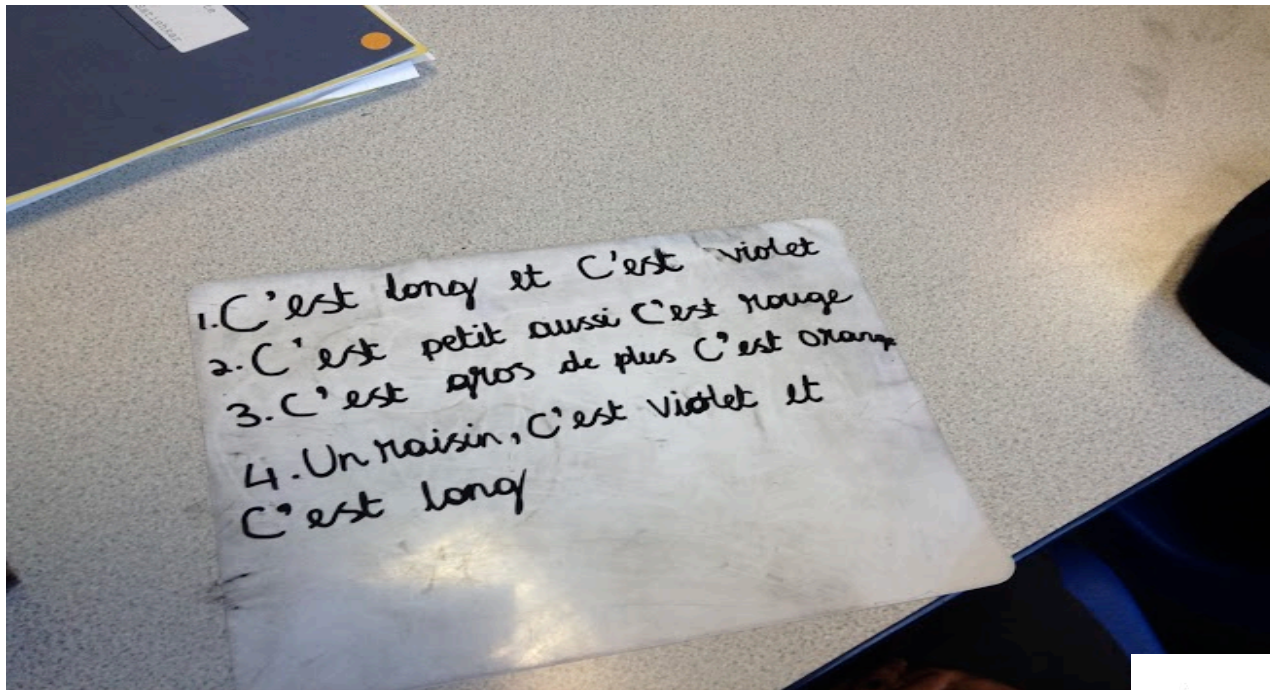 1. C'est long et C'est violet
2. C'est petit aussi C'est rouge
3. C'est gros de plus C'est orange
4. Un raisin, C'est violet et
C'est long